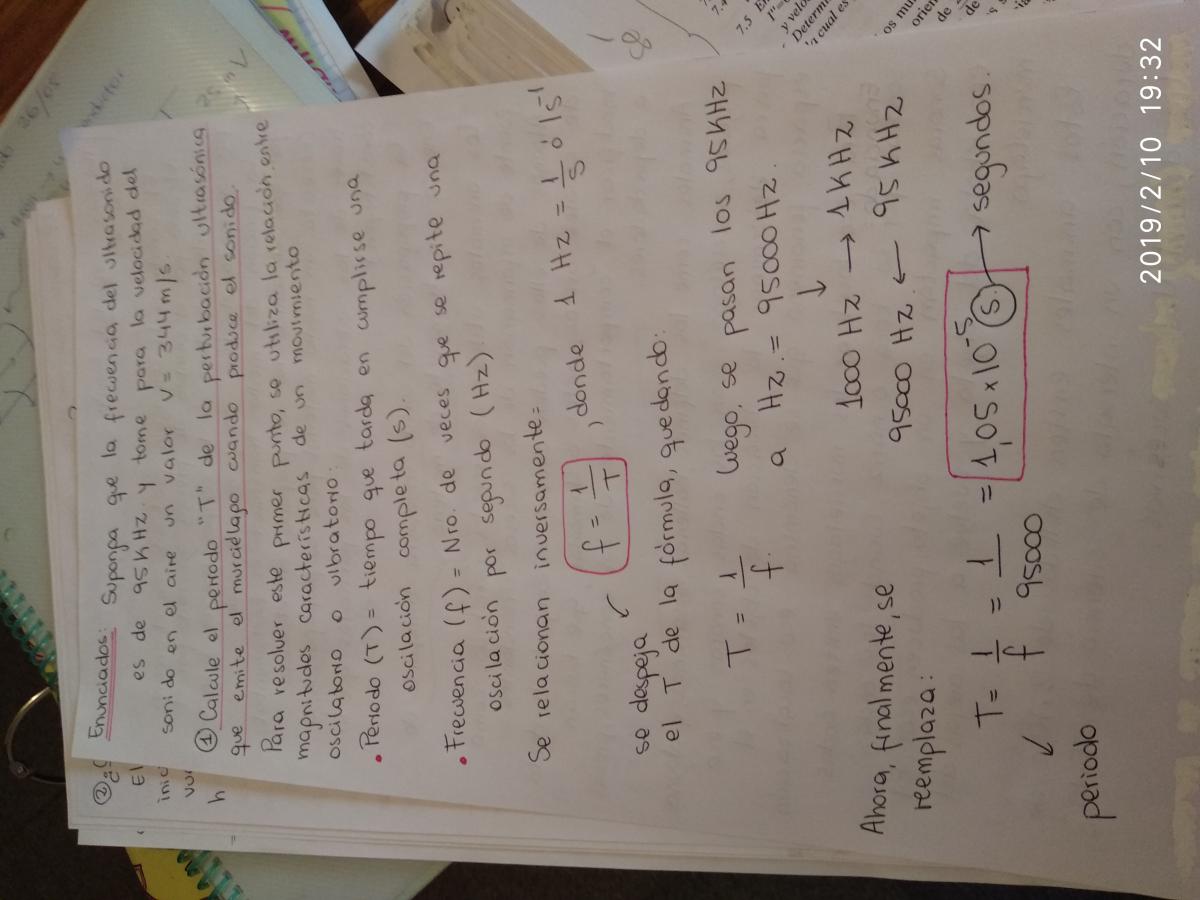 Enunciados: Suponga que la frecuencia del ultrasonido
es de 95KHz y tome para la velocidad del
sonido en el aire un valor V = 344 m/s.
① Calcule el periodo "T" de la perturbación ultrasónica
que emite el murciélago cuando produce el sonido.
Para resolver este primer punto, se utiliza la relación entre
magnitudes características de un movimiento
oscilatorio o vibratorio:
• Periodo (T) = tiempo que tarda en cumplirse una
oscilación completa (s).
• Frecuencia (f) = Nro. de veces que se repite una
oscilación por segundo (Hz)
Se relacionan inversamente:
f = 1/T , donde 1 Hz = 1/s ó 1s⁻¹
se despeja
el T de la fórmula, quedando:
T = 1/f luego, se pasan los 95KHz
a Hz. = 95000Hz.
↓
1000 Hz → 1KHz
95000 Hz ← 95KHz
Ahora, finalmente, se
reemplaza:
T = 1/f = 1/95000 = 1,05 x 10⁻⁵ (s) → segundos.
periodo
②
El
inic
vu
h
26/05
7.4
7.5
y velo
Determin
cual es
os mu
orien
de
2019/2/10 19:32